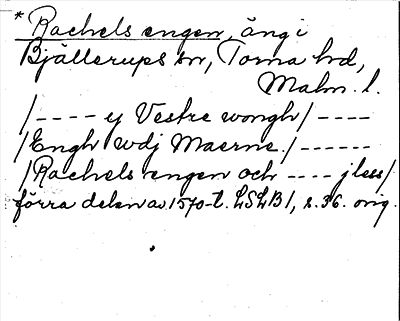 * Rachels engen, äng i
Bjällerups sn, Torna hd,
Malm. l.
/---- ej Vestre wongh/ ----
/Engh wdj Maerne./ ------
/Rachels engen och ---- jless/
förra delen av 1570-t. LSLB 1, s. 36. orig.